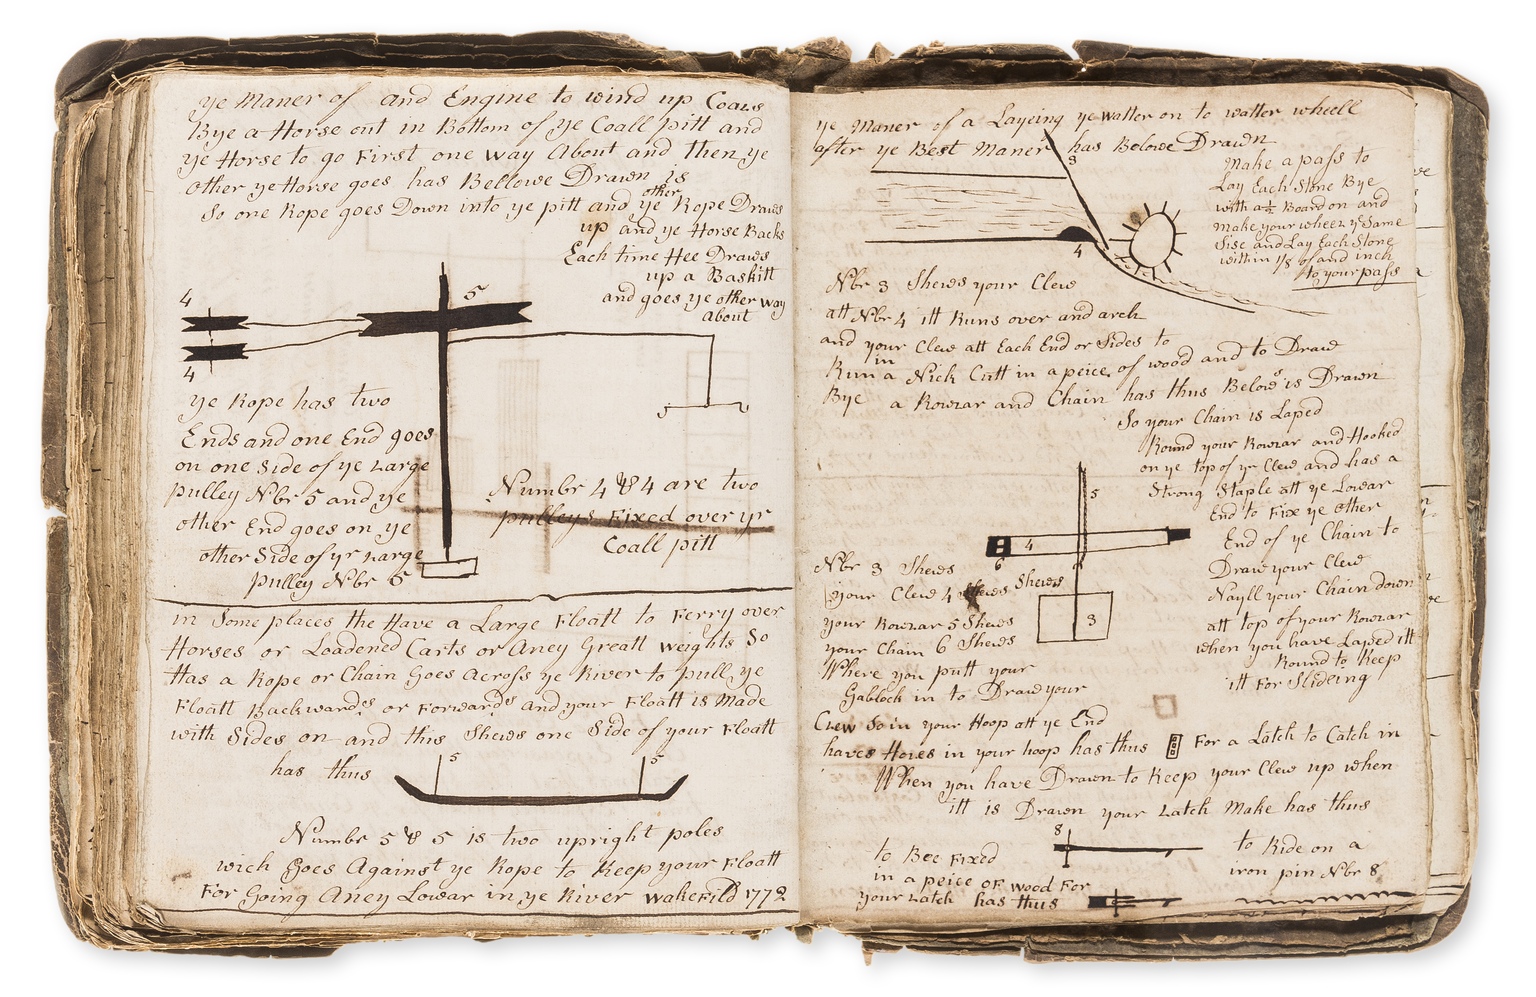 ye Maner of and Engine to wind up Coals
Bye a Horse out in Bottom of ye Coall pitt and
ye Horse to go First one way About and then ye
other ye Horse goes has Bellowe Drawn is
So one Rope goes Down into ye pitt and ye other Rope Draws
up and ye Horse Backs
Each time Hee Draws
up a Baskitt
and goes ye other way
about
5
4
4
ye Rope has two
Ends and one End goes
on one Side of ye Large
pulley Nbr 5 and ye
other End goes on ye
other Side of yr Large
pulley Nbr 5
Numbr 4 & 4 are two
pulleys Fixed over yr
Coall pitt
in Some places the Have a Large Floatt to Ferry over
Horses or Loadened Carts or Aney Greatt weights So
Has a Rope or Chain Goes Across ye River to pull ye
Floatt Backwards or Forwards and your Floatt is Made
with Sides on and this Shews one Side of your Floatt
has thus
5
5
Numbr 5 & 5 is two upright poles
wich Goes Against ye Rope to Keep your Floatt
For Going Aney Lowar in ye River wakefild 1772
ye Maner of a Layeing ye watter on to watter wheell
after ye Best Maner has Belowe Drawn
3
4
Make a pass to
Lay Each Stone Bye
with a ½ Board on and
make your wheer ye Same
Sise and Lay Each Stone
within 1/8 of and inch
to your pass
Nbr 3 Shews your Clew
att Nbr 4 itt Runs over and arch
and your Clew att Each End or Sides to
Run in a Nick Cutt in a peice of wood and to Draw
Bye a Rowzar and Chain has thus Belowe is Drawn
So your Chain is Laped
Round your Rowzar and Hooked
on ye top of yr Clew and has a
Strong Staple att ye Lowar
End to Fix ye other
End of ye Chain to
Draw your Clew
Nayll your Chain down
att top of your Rowzar
when you have Laped itt
Round to Keep
itt For Slideing
5
4
6
3
Nbr 3 Shews
your Clew 4 Shews
your Rowzar 5 Shews
your Chain 6 Shews
Where you putt your
Gablock in to Draw your
Clew So in your Hoop att ye End
haves Hores in your hoop has thus For a Latch to Catch in
When you have Drawn to Keep your Clew up when
itt is Drawn your Latch Make has thus
8
to Bee Fixed
in a peice of wood For
your Latch has thus
to Ride on a
iron pin Nbr 8